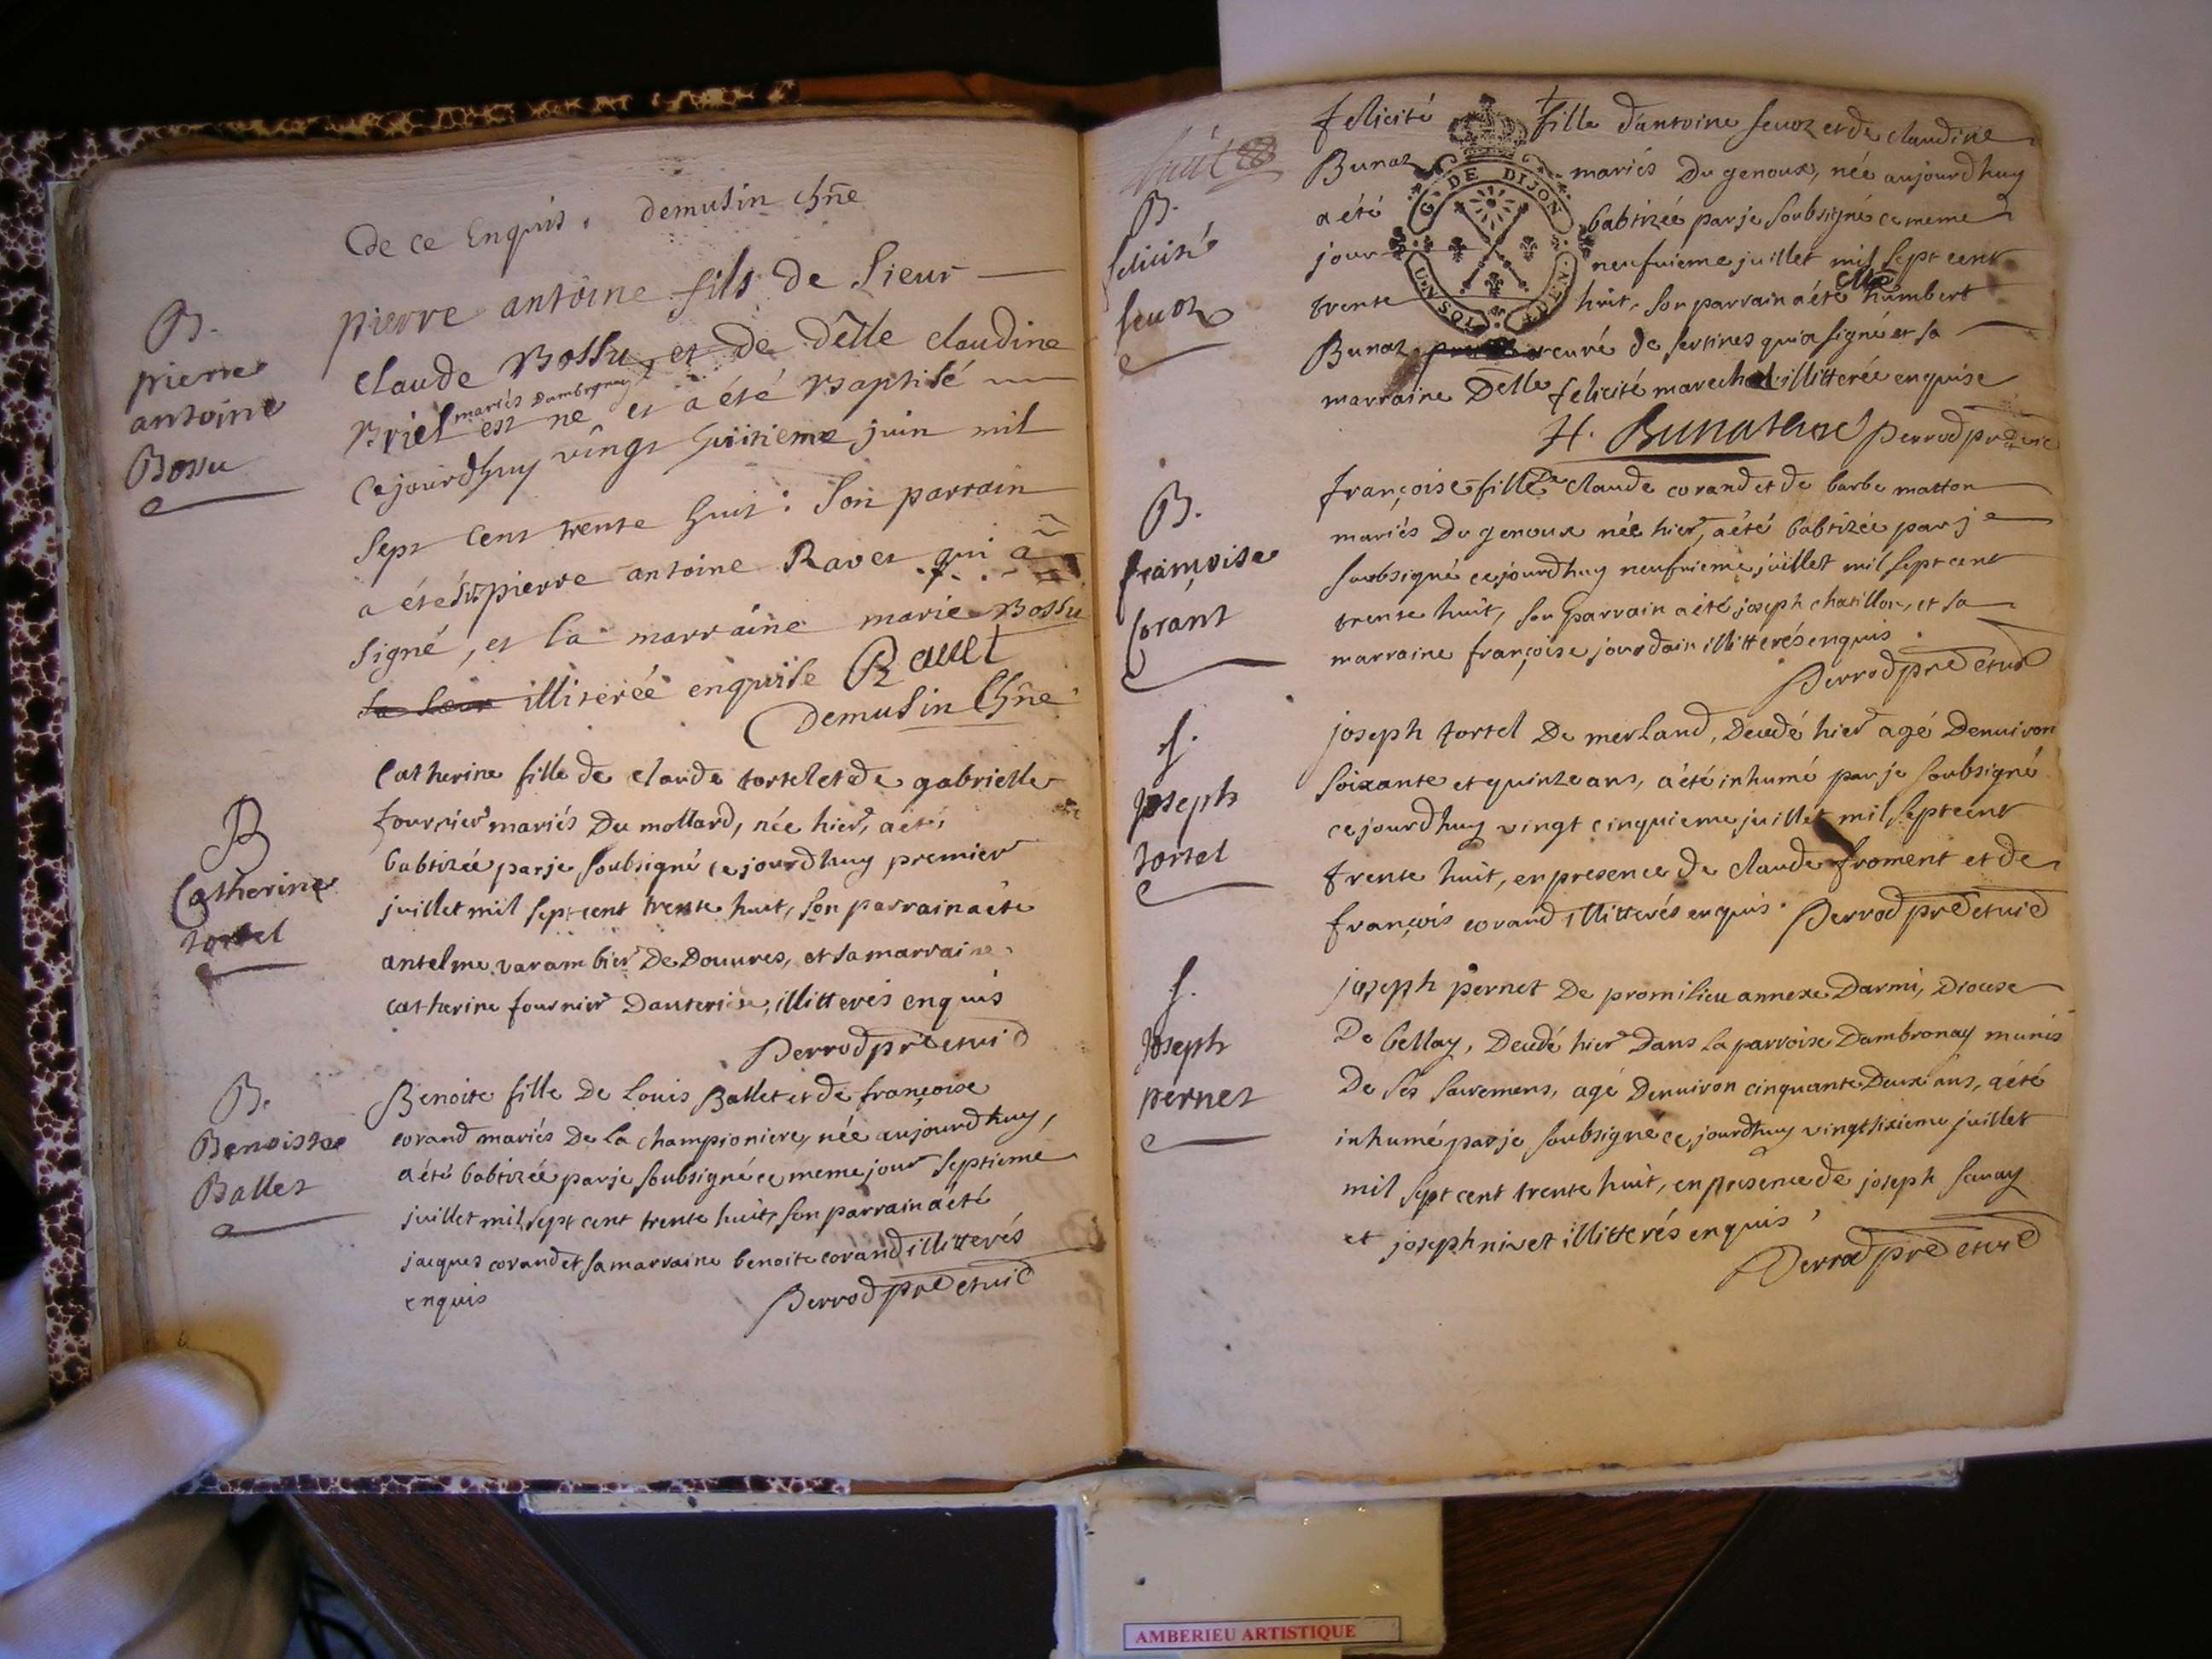 de ce Enquis. demusin chne
B.
pierre
antoine
Bossu
pierre antoine fils de sieur
claude Bossu et de delle claudine
mariés dambronay
Briel est né et a été Baptisé
cejourdhuy vingt huitieme juin mil
sept cent trente huit : son parrain
a été sr pierre antoine Ravet qui a
signé, et la marraine marie Bossu
sa sœur illiterée enquise Ravet
Demusin Chne
B
Catherine
tortel
Catherine fille de claude tortel et de gabrielle
fournier mariés du mollard, née hier, a été
babtizée par je soubsigné cejourdhuy premier
juillet mil sept cent trente huit, son parrain a été
antelme varambier De Douvres, et sa marraine
catherine fournier illitterés enquis
Perrod pre et vic
B.
Benoiste
Ballet
Benoite fille De Louis Ballet et de françoise
corand mariés De la championiere, née aujourdhuy,
a été babtizée par je soubsigné ce meme jour septieme
juillet mil sept cent trente huit, son parrain a été
jacques corand et sa marraine benoite corand illitterés
enquis Perrod pre et vic
huit
B.
felicité
seuoz
felicité fille d'antoine seuoz et de claudine
Bunaz mariés Du genoux, née aujourdhuy
a été babtizée par je soubsigné ce meme
jour neufuieme juillet mil sept cent
trente huit, son parrain a été humbert
Bunaz curé de qui a signé et sa
marraine Delle felicité marechal illitterée enquise
H. Perrod pre et vic
G. DE DIJON
UN SOL
B.
françoise
Corant
françoise fille de claude corand et de barbe matton
mariés Du genoux née hier, a été babtizée par je
soubsigné cejourdhuy neufuieme juillet mil sept cent
trente huit, son parrain a été joseph chatillon, et sa
marraine françoise jourdain illitterés enquis
Perrod pre et vic
S.
joseph
tortel
joseph tortel De merland, Decedé hier agé Denuiron
soixante et quinze ans, a été inhumé par je soubsigné
cejourdhuy vingt cinquieme juillet mil sept cent
trente huit, en presence de claude froment et de
françois corand illitterés enquis. Perrod pre et vic
S.
Joseph
pernet
joseph pernet De promilieu annexe Darmi, Diocese
De bellay, Decedé hier Dans la parroise Dambronay munis
De ses sacremens, agé Denuiron cinquante Deux ans, a été
inhumé par je soubsigné ce jourdhuy vingtsixieme juillet
mil sept cent trente huit, en presence de joseph sauay
et joseph nivet illitterés enquis
Perrod pre et vic
AMBERIEU ARTISTIQUE